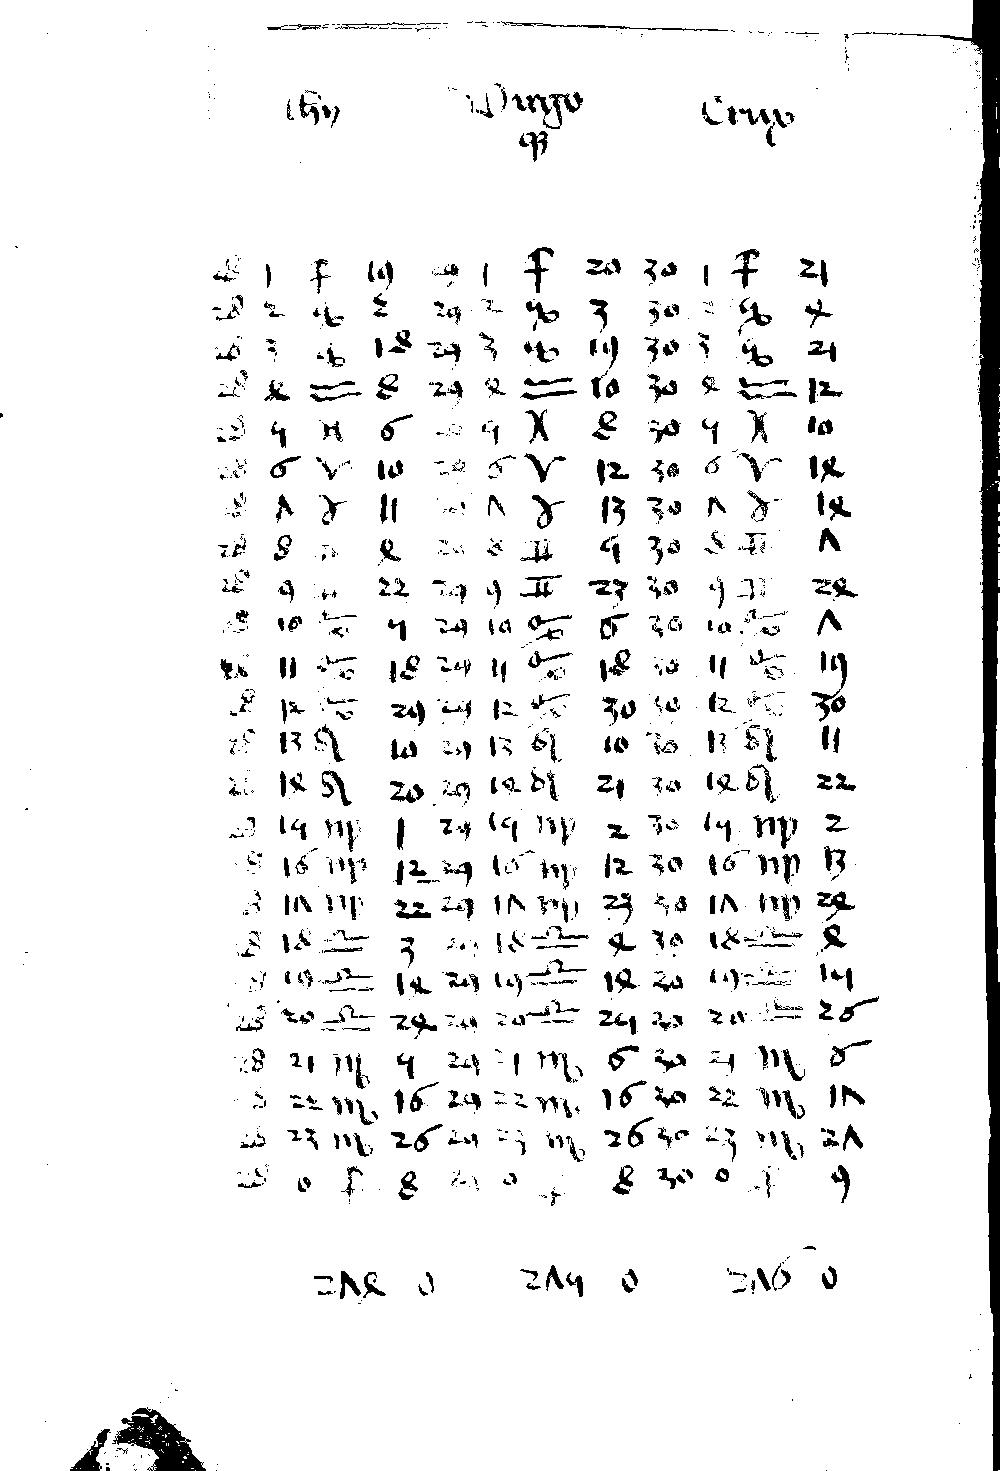 Ihu Virgo Crux
♍
28 1 ♐ 19 29 1 ♐ 20 30 1 ♐ 21
28 2 ♑ 2 29 2 ♑ 3 30 2 ♑ 4
28 3 ♑ 18 29 3 ♑ 19 30 3 ♑ 21
28 4 ♒ 8 29 4 ♒ 10 30 4 ♒ 12
28 5 ♓ 6 29 5 ♓ 8 30 5 ♓ 10
28 6 ♈ 10 29 6 ♈ 12 30 6 ♈ 14
28 7 ♉ 11 29 7 ♉ 13 30 7 ♉ 14
28 8 ♊ 4 29 8 ♊ 5 30 8 ♊ 7
28 9 ♊ 22 29 9 ♊ 23 30 9 ♊ 24
28 10 ♋ 5 29 10 ♋ 6 30 10 ♋ 7
28 11 ♋ 18 29 11 ♋ 18 30 11 ♋ 19
28 12 ♋ 29 29 12 ♋ 30 30 12 ♋ 30
28 13 ♌ 10 29 13 ♌ 10 30 13 ♌ 11
28 14 ♌ 20 29 14 ♌ 21 30 14 ♌ 22
28 15 ♍ 1 29 15 ♍ 2 30 15 ♍ 2
28 16 ♍ 12 29 16 ♍ 12 30 16 ♍ 13
28 17 ♍ 22 29 17 ♍ 23 30 17 ♍ 24
28 18 ♎ 3 29 18 ♎ 4 30 18 ♎ 4
28 19 ♎ 14 29 19 ♎ 14 30 19 ♎ 15
28 20 ♎ 24 29 20 ♎ 25 30 20 ♎ 26
28 21 ♏ 5 29 21 ♏ 6 30 21 ♏ 6
28 22 ♏ 16 29 22 ♏ 16 30 22 ♏ 17
28 23 ♏ 26 29 23 ♏ 26 30 23 ♏ 27
28 0 ♐ 8 29 0 ♐ 8 30 0 ♐ 9
274 0 275 0 276 0